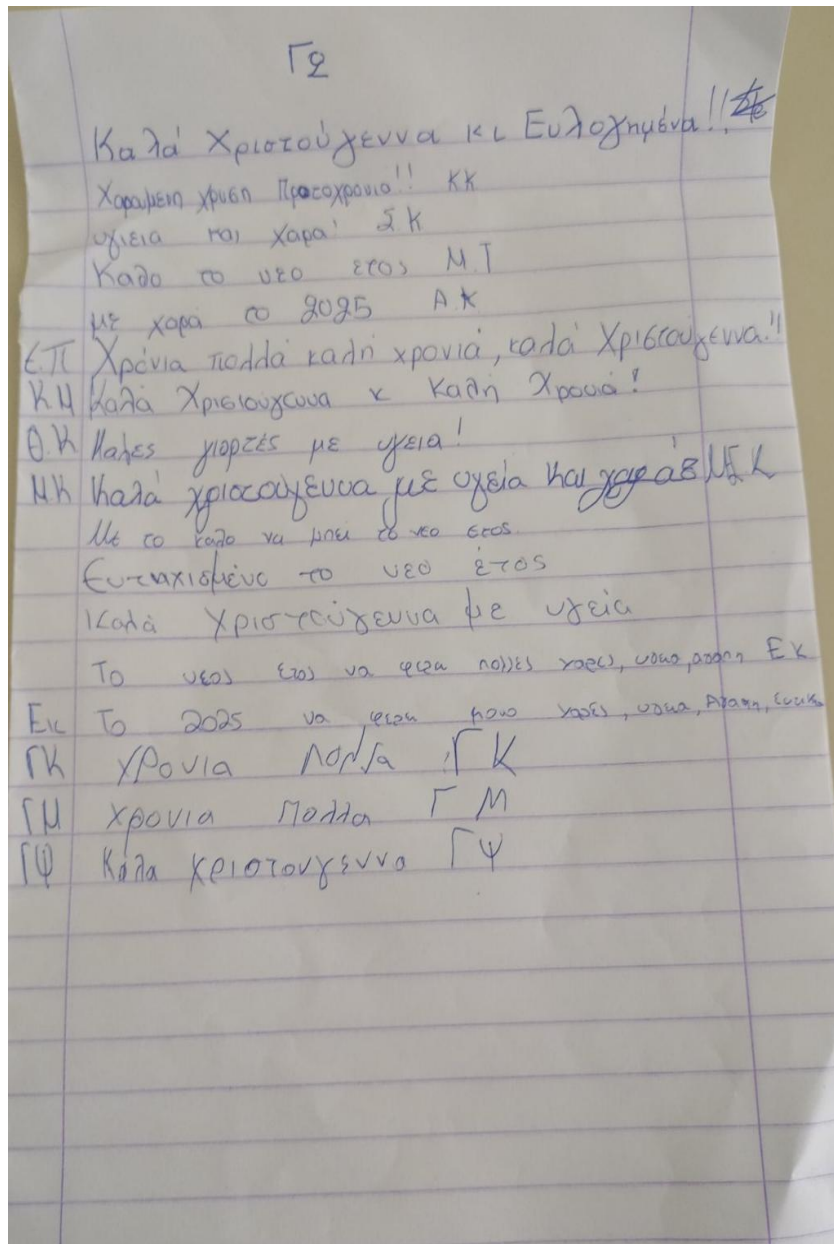 Γ2
Καλά Χριστούγεννα κι Ευλογημένα!!
Χαρούμενη χρυση Πρωτοχρονια!! ΚΚ
υγιεια και χαρα! Σ Κ
Καλο το νεο ετος Μ.Τ
με χαρά το 2025 Α.Κ
Ε.Π Χρόνια πολλά καλή χρονιά, καλά Χριστούγεννα!!
ΚΜ Καλά Χριστούγεννα κ Καλή Χρονιά!
Θ.Κ Καλες γιορτές με υγεια!
ΜΚ Καλά χριστούγεννα με υγεία και
Με το καλο να μπει το νεο ετος
Ευτυχισμένο το νεο έτος
Καλά Χριστούγεννα με υγεία
Το νεος ετος να φερει πολλες χαρες, υγεια, αγαπη ΕΚ
Εκ Το 2025 να φερει μονο χαρές, υγεια, Αγαπη,
ΓΚ χρονια πολλα ΓΚ
ΓΜ χρονια πολλα Γ Μ
ΓΨ Κάλα χριστουγεννα ΓΨ